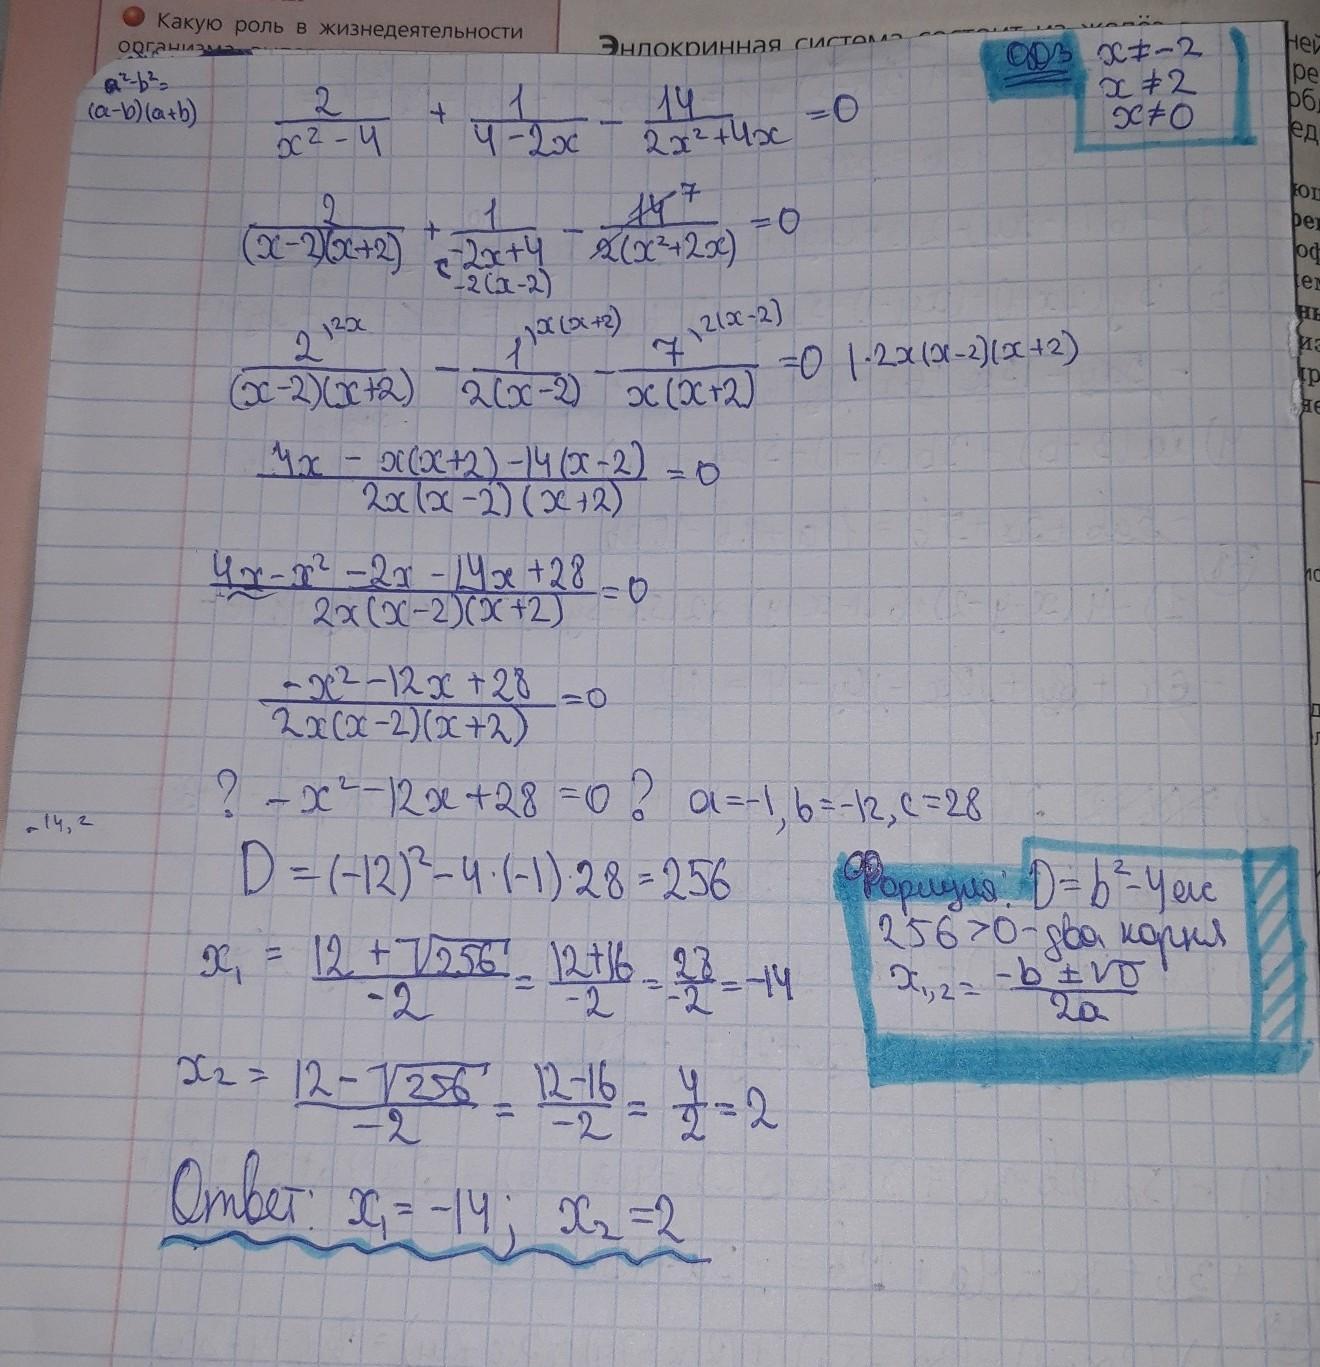 Какую роль в жизнедеятельности
организма
Эндокринная система состоит из желёз
ОДЗ x ≠ -2
x ≠ 2
x ≠ 0
a²-b²=
(a-b)(a+b)
2/(x²-4) + 1/(4-2x) - 14/(2x²+4x) = 0
2/((x-2)(x+2)) + 1/(-2x+4) - 14 7/(2(x²+2x)) = 0
-2(x-2)
2^(2x)/((x-2)(x+2)) - 1^(x(x+2))/(2(x-2)) - 7^(2(x-2))/(x(x+2)) = 0 | ·2x(x-2)(x+2)
(4x - x(x+2) - 14(x-2))/(2x(x-2)(x+2)) = 0
(4x - x² - 2x - 14x + 28)/(2x(x-2)(x+2)) = 0
(-x² - 12x + 28)/(2x(x-2)(x+2)) = 0
? -x² - 12x + 28 = 0 ? a=-1, b=-12, c=28
-14, 2
D = (-12)² - 4·(-1)·28 = 256
Формула: D = b² - 4ac
256 > 0 - два корня
x₁,₂ = (-b ± √D)/2a
x₁ = (12 + √256)/-2 = (12+16)/-2 = 28/-2 = -14
x₂ = (12 - √256)/-2 = (12-16)/-2 = 4/2 = 2
Ответ: x₁ = -14; x₂ = 2